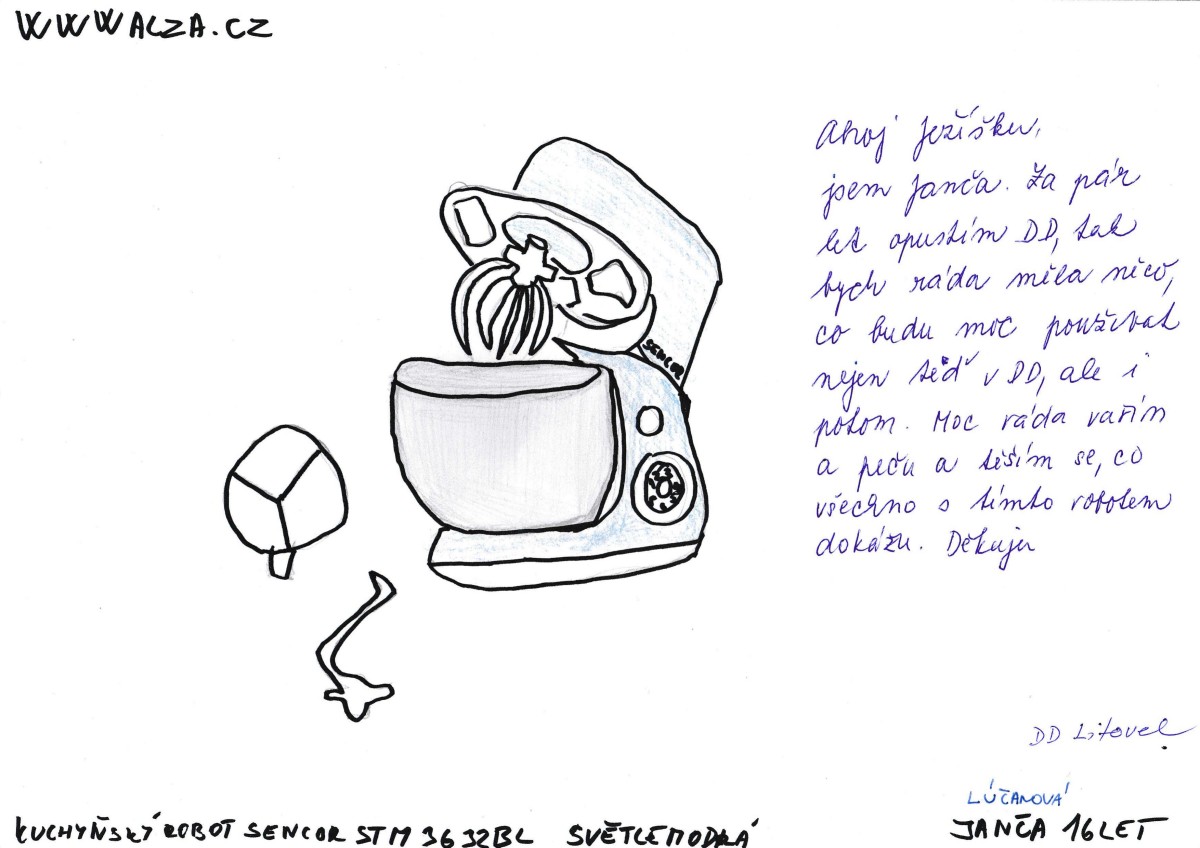 WWWALZA.CZ
Ahoj Ježíšku,
jsem Janča. Za pár
let opustím DD, tak
bych ráda měla něco,
co budu moc používat
nejen teď v DD, ale i
potom. Moc ráda vařím
a peču a těším se, co
všechno s tímto robotem
dokážu. Děkuju
SENCOR
DD Litovel
LÚČANOVÁ
JANČA 16 LET
KUCHYŇSKÝ ROBOT SENCOR STM 3632BL SVĚTLEMODRÁ